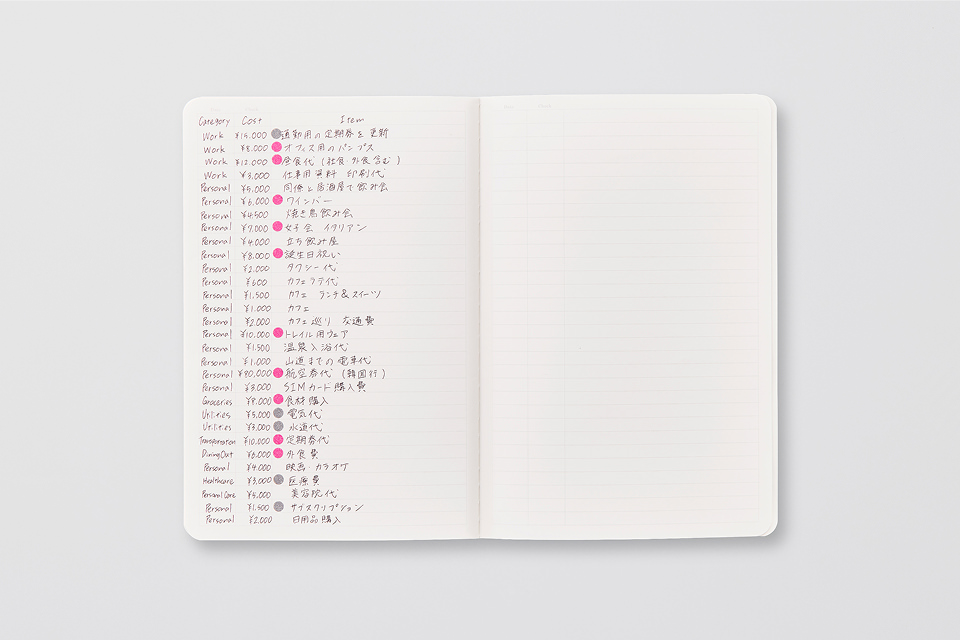 Category Cost Item
Work ¥15,000 通勤用の定期券を更新
Work ¥8,000 オフィス用のパンプス
Work ¥12,000 昼食代（社食・外食含む）
Work ¥3,000 仕事用資料 印刷代
Personal ¥5,000 同僚と居酒屋で飲み会
Personal ¥6,000 ワインバー
Personal ¥4,500 焼き鳥飲み会
Personal ¥7,000 女子会 イタリアン
Personal ¥4,000 立ち飲み屋
Personal ¥8,000 誕生日祝い
Personal ¥2,000 タクシー代
Personal ¥600 カフェラテ代
Personal ¥1,500 カフェ ランチ&スイーツ
Personal ¥1,000 カフェ
Personal ¥2,000 カフェ巡り 交通費
Personal ¥10,000 トレイル用ウェア
Personal ¥1,500 温泉入浴代
Personal ¥1,000 山道までの電車代
Personal ¥80,000 航空券代（韓国行）
Personal ¥3,000 SIMカード購入費
Groceries ¥8,000 食材購入
Utilities ¥5,000 電気代
Utilities ¥3,000 水道代
Transportation ¥10,000 定期券代
Dining Out ¥6,000 外食費
Personal ¥4,000 映画・カラオケ
Healthcare ¥3,000 医療費
Personal Care ¥5,000 美容院代
Personal ¥1,500 サブスクリプション
Personal ¥2,000 日用品購入